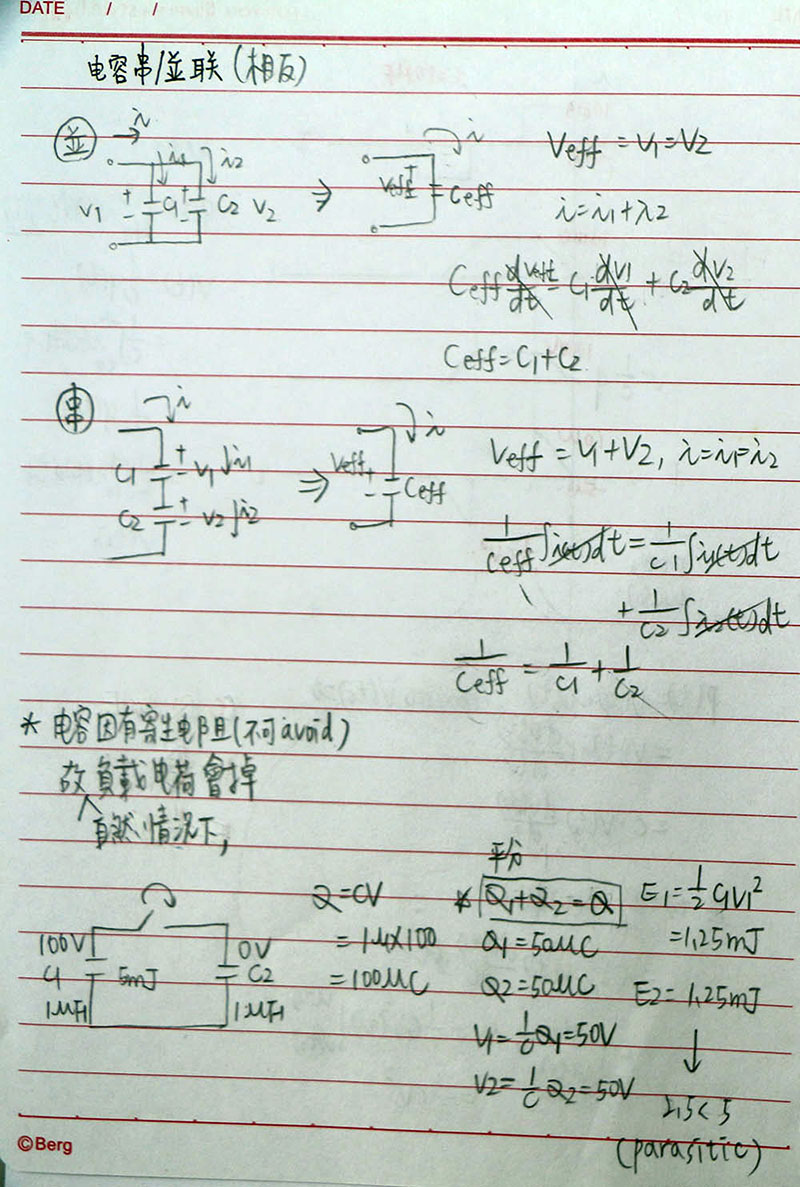 DATE / /
电容串/並联(相反)
並 i
i1 i2
V1 + - C1 + - C2 V2 ⇒ Veff + - Ceff i
Veff = V1 = V2
i = i1 + i2
Ceff dVeff/dt = C1 dV1/dt + C2 dV2/dt
Ceff = C1 + C2
串 i
C1 + - V1 ↓i1
C2 + - V2 ↓i2
⇒ Veff + - Ceff i
Veff = V1 + V2, i = i1 = i2
1/Ceff ∫i(t)dt = 1/C1 ∫i1(t)dt
+ 1/C2 ∫i2(t)dt
1/Ceff = 1/C1 + 1/C2
* 电容因有寄生电阻(不可avoid)
故負載电荷會掉
自然情況下,
100V 0V
C1 5mJ C2
1μF 1μF
Q = CV
= 1μ×100
= 100μC
平分
* Q1+Q2 = Q
Q1 = 50μC
Q2 = 50μC
V1 = 1/C Q1 = 50V
V2 = 1/C Q2 = 50V
E1 = 1/2 C1V1²
= 1.25mJ
E2 = 1.25mJ
↓
2.5 < 5
(parasitic)
©Berg